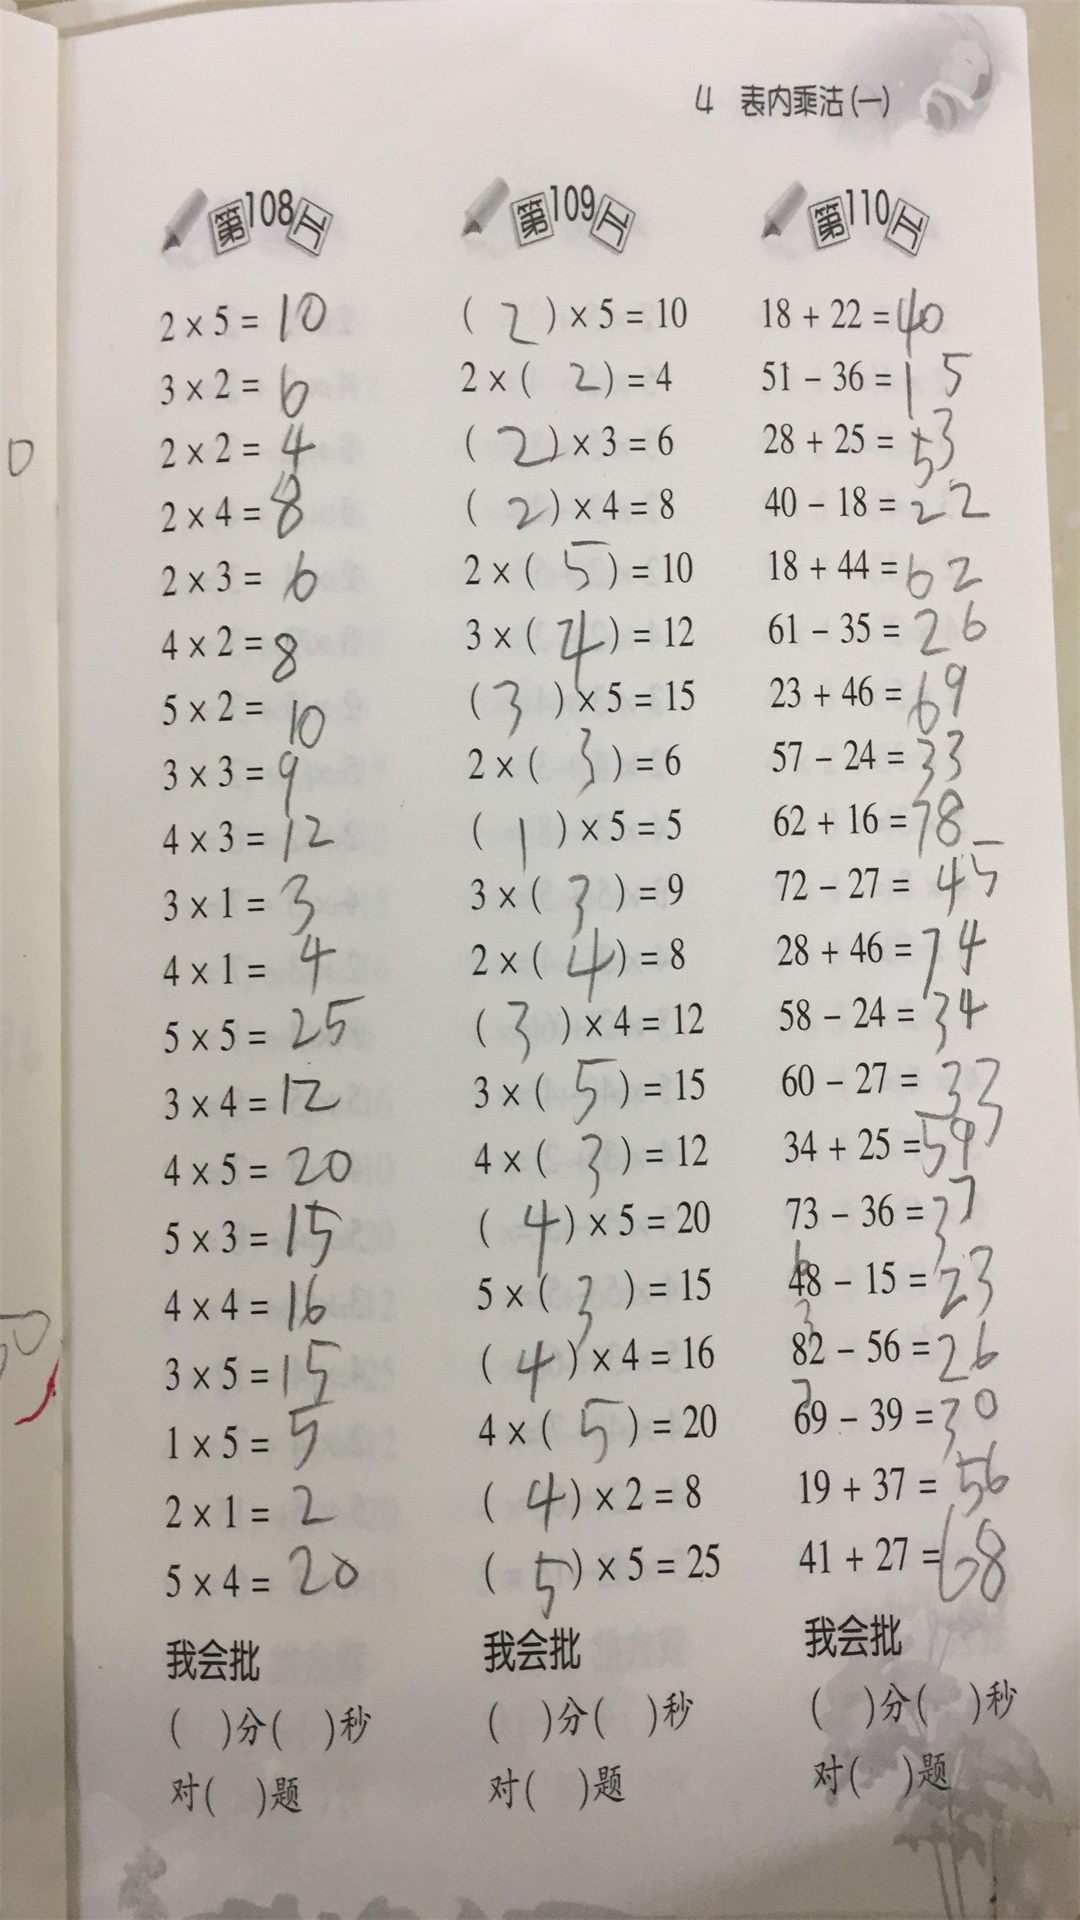 4 表内乘法(一)
第108工
2 × 5 = 10
3 × 2 = 6
2 × 2 = 4
2 × 4 = 8
2 × 3 = 6
4 × 2 = 8
5 × 2 = 10
3 × 3 = 9
4 × 3 = 12
3 × 1 = 3
4 × 1 = 4
5 × 5 = 25
3 × 4 = 12
4 × 5 = 20
5 × 3 = 15
4 × 4 = 16
3 × 5 = 15
1 × 5 = 5
2 × 1 = 2
5 × 4 = 20
我会批
( )分( )秒
对( )题
第109工
( 2 ) × 5 = 10
2 × ( 2 ) = 4
( 2 ) × 3 = 6
( 2 ) × 4 = 8
2 × ( 5 ) = 10
3 × ( 4 ) = 12
( 3 ) × 5 = 15
2 × ( 3 ) = 6
( 1 ) × 5 = 5
3 × ( 3 ) = 9
2 × ( 4 ) = 8
( 3 ) × 4 = 12
3 × ( 5 ) = 15
4 × ( 3 ) = 12
( 4 ) × 5 = 20
5 × ( 3 ) = 15
( 4 ) × 4 = 16
4 × ( 5 ) = 20
( 4 ) × 2 = 8
( 5 ) × 5 = 25
我会批
( )分( )秒
对( )题
第110工
18 + 22 = 40
51 − 36 = 15
28 + 25 = 53
40 − 18 = 22
18 + 44 = 62
61 − 35 = 26
23 + 46 = 69
57 − 24 = 33
62 + 16 = 78
72 − 27 = 45
28 + 46 = 74
58 − 24 = 34
60 − 27 = 33
34 + 25 = 59
73 − 36 = 37
48 − 15 = 23
82 − 56 = 26
69 − 39 = 30
19 + 37 = 56
41 + 27 = 68
我会批
( )分( )秒
对( )题